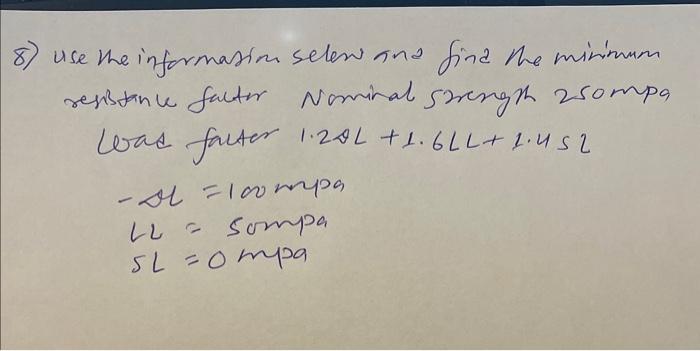 8) use the information below and find the minimum
resistance factor Nominal strength 250mpa
load factor 1.2DL + 1.6LL + 1.4SL
- DL = 100mpa
LL = 50mpa
SL = 0 mpa